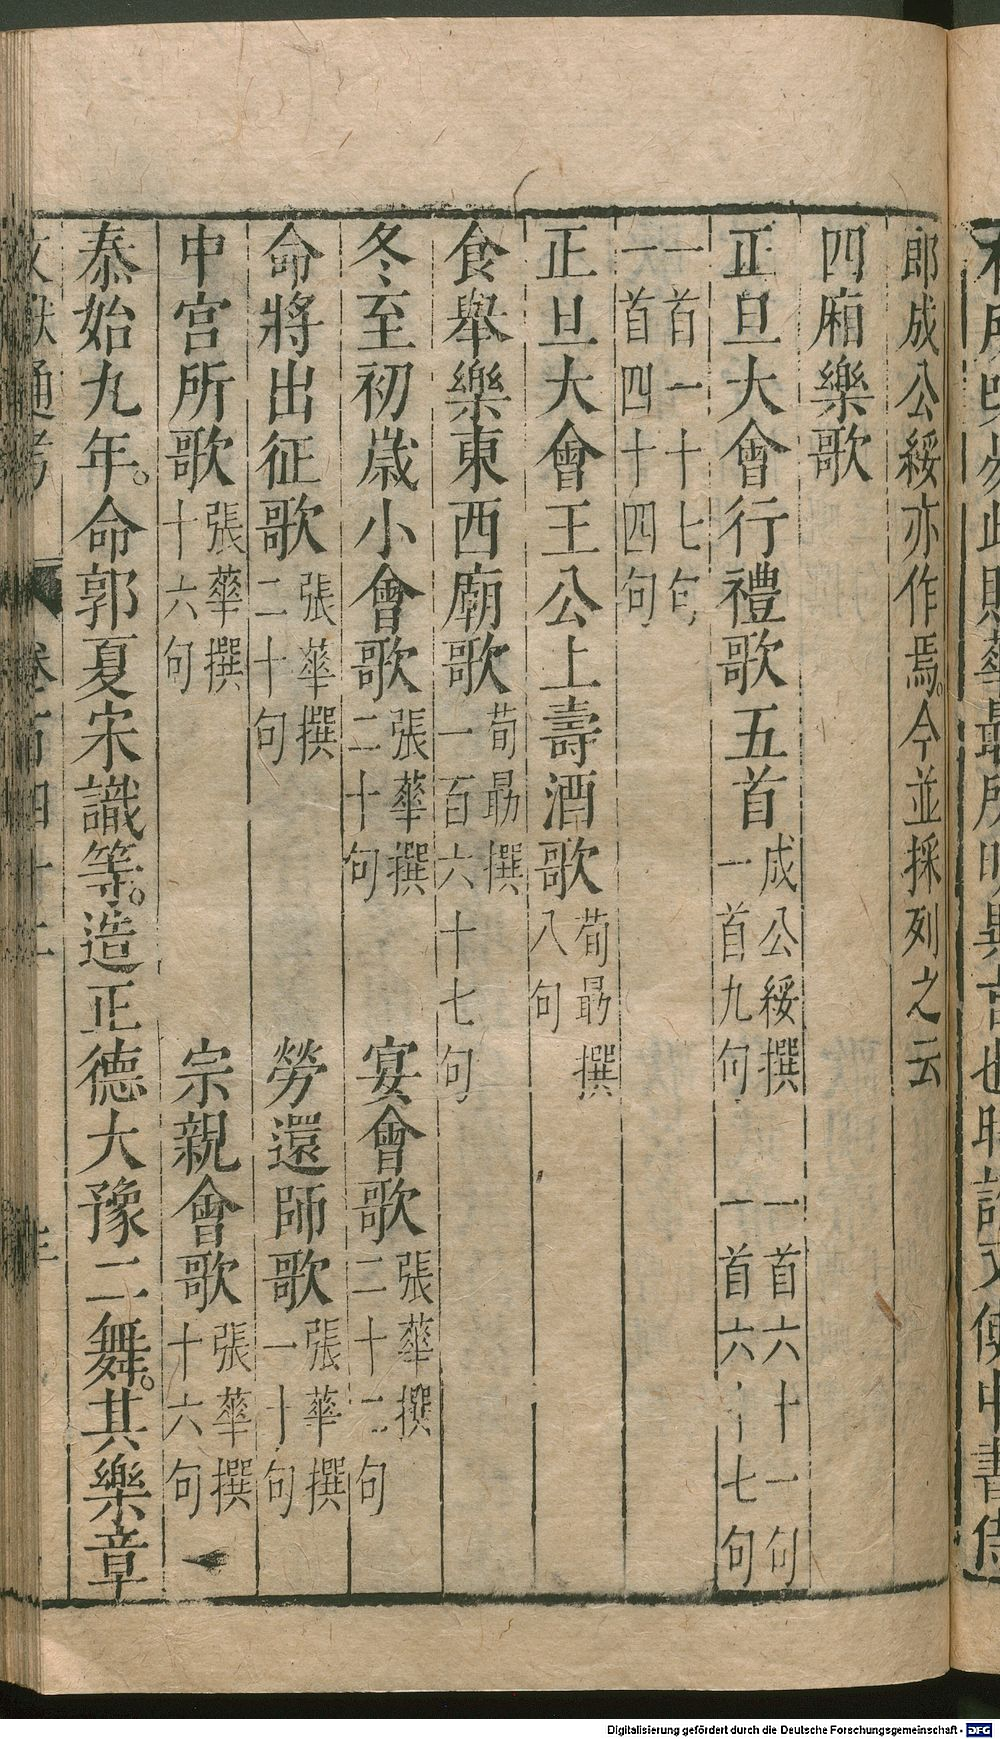 郎成公綏亦作焉。今並採列之云
四廂樂歌
正旦大會行禮歌五首 成公綏撰 一首九句 一首六十一句 一首六十七句
一首一十七句 一首四十四句
正旦大會王公上壽酒歌 荀勗撰 八句
食舉樂東西廟歌 荀勗撰 一百六十七句
冬至初歲小會歌 張華撰 二十句 宴會歌 張華撰 二十二句
命將出征歌 張華撰 二十句 勞還師歌 張華撰 一十句
中宮所歌 張華撰 十六句 宗親會歌 張華撰 十六句
泰始九年。命郭夏宋識等。造正德大豫二舞。其樂章
通考 卷百四十二
Digitalisierung gefördert durch die Deutsche Forschungsgemeinschaft - DFG